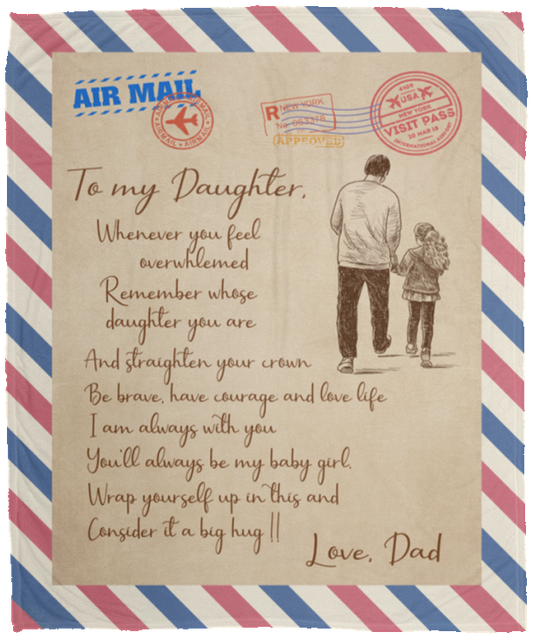 AIR MAIL
AIRMAIL • AIRMAIL • AIRMAIL
R NEW YORK
APPROVED
USA
NEW YORK
VISIT PASS
INTERNATIONAL AIRPORT
To my Daughter,
Whenever you feel
overwhlemed
Remember whose
daughter you are
And straighten your crown
Be brave, have courage and love life
I am always with you
You'll always be my baby girl.
Wrap yourself up in this and
Consider it a big hug !!
Love, Dad